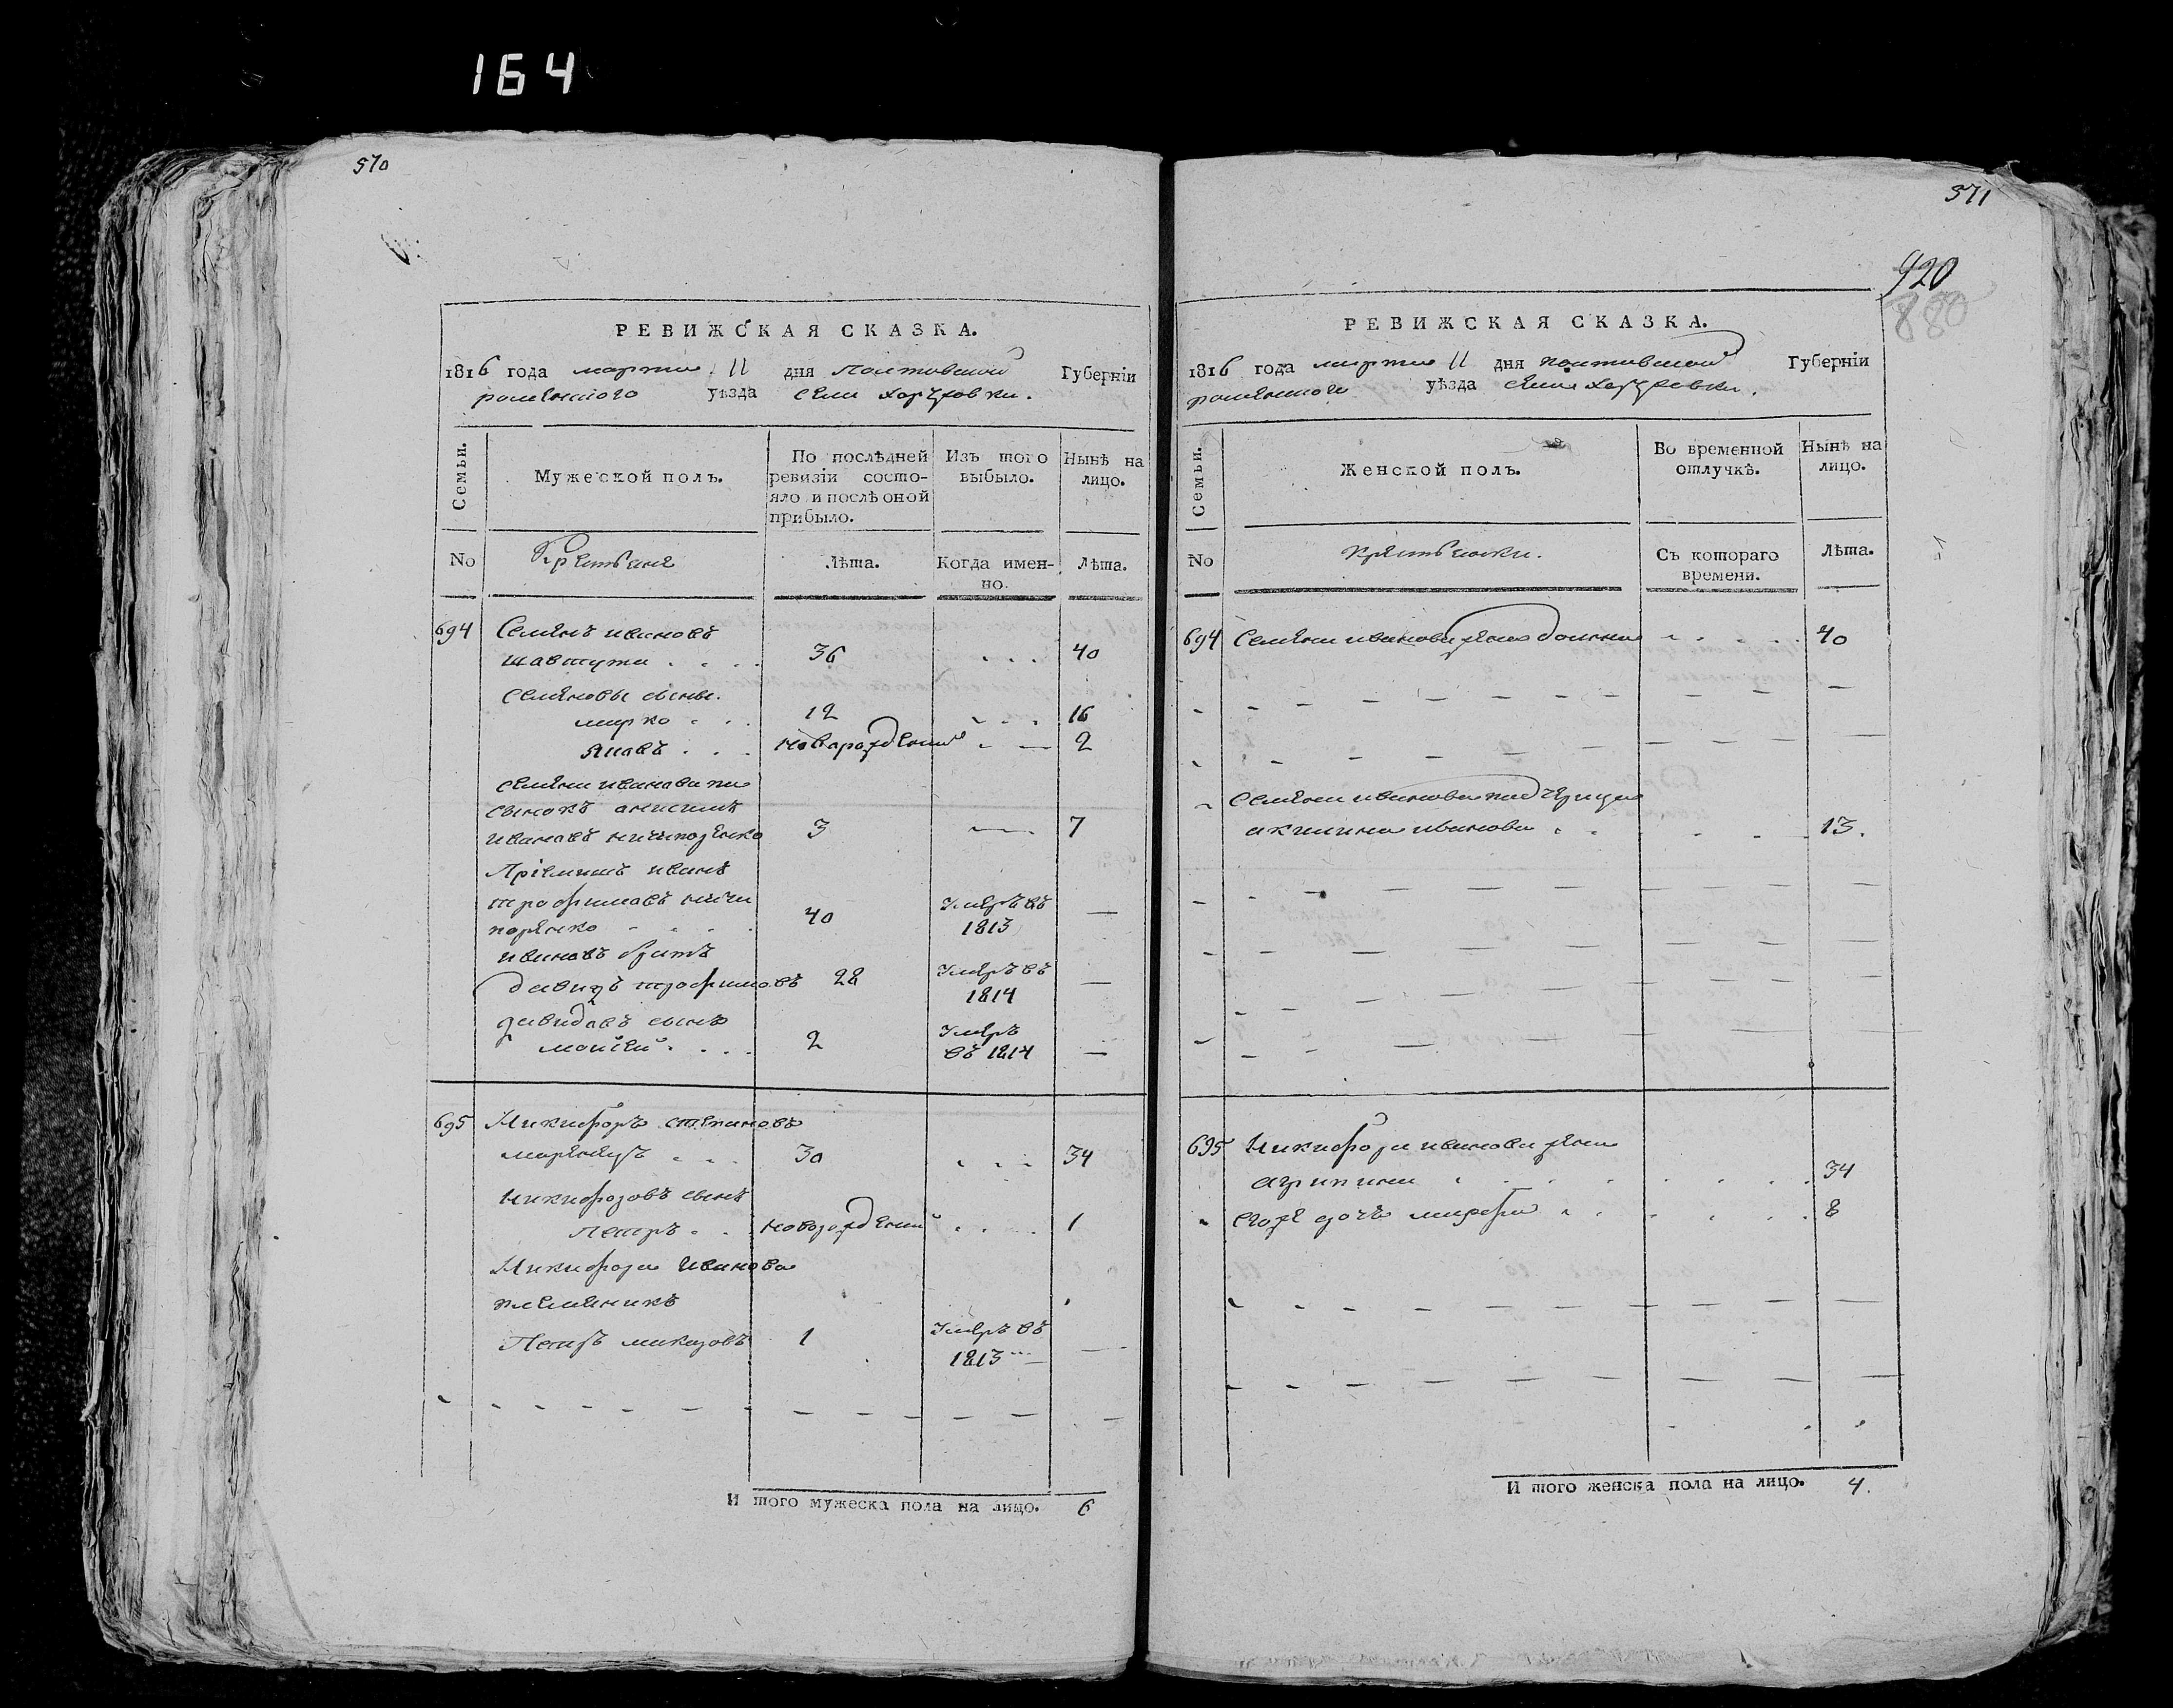 164
570
РЕВИЖСКАЯ СКАЗКА.
1816 года марта 11 дня Полтавской Губерніи
роменского уѣзда села
Семьи.
Мужеской полъ.
По послѣдней ревизіи состо-
яло и послѣ оной
прибыло.
Изъ того выбыло.
Нынѣ на лицо.
No
Крестьяне
Лѣта.
Когда имен-
но.
Лѣта.
694 Семенъ ивановъ
36 40
Семеновы сыны.
марко 12 16
новорожденный 2
семена иванова па
сынокъ анисимъ
ивановъ ничипоренко 3 7
Пріемышъ иванъ
трофимовъ ничи
поренко 40 умре въ 1813 —
ивановъ братъ
давидъ трофимовъ 28 умре въ 1814 —
давидовъ сынъ
моисей 2 умре въ 1814 —
695 Никифоръ степановъ
30 34
Никифоровъ сынъ
Петръ новорожденный 1
Никифора Иванова
племеникъ
Петръ макаровъ 1 умре въ 1813 —
И того мужеска пола на лицо. 6
571
920
880
РЕВИЖСКАЯ СКАЗКА.
1816 года марта 11 дня полтавской Губерніи
роменского уѣзда села
Семьи.
Женской полъ.
Во временной
отлучкѣ.
Нынѣ на
лицо.
No
крестьянки.
Съ котораго
времени.
Лѣта.
694 Семена иванова жена 40
Семена иванова падчерица
акилина иванова 13.
695 Никифора иванова жена
агрипина 34
его же дочь марфа 8
И того женска пола на лицо. 4.